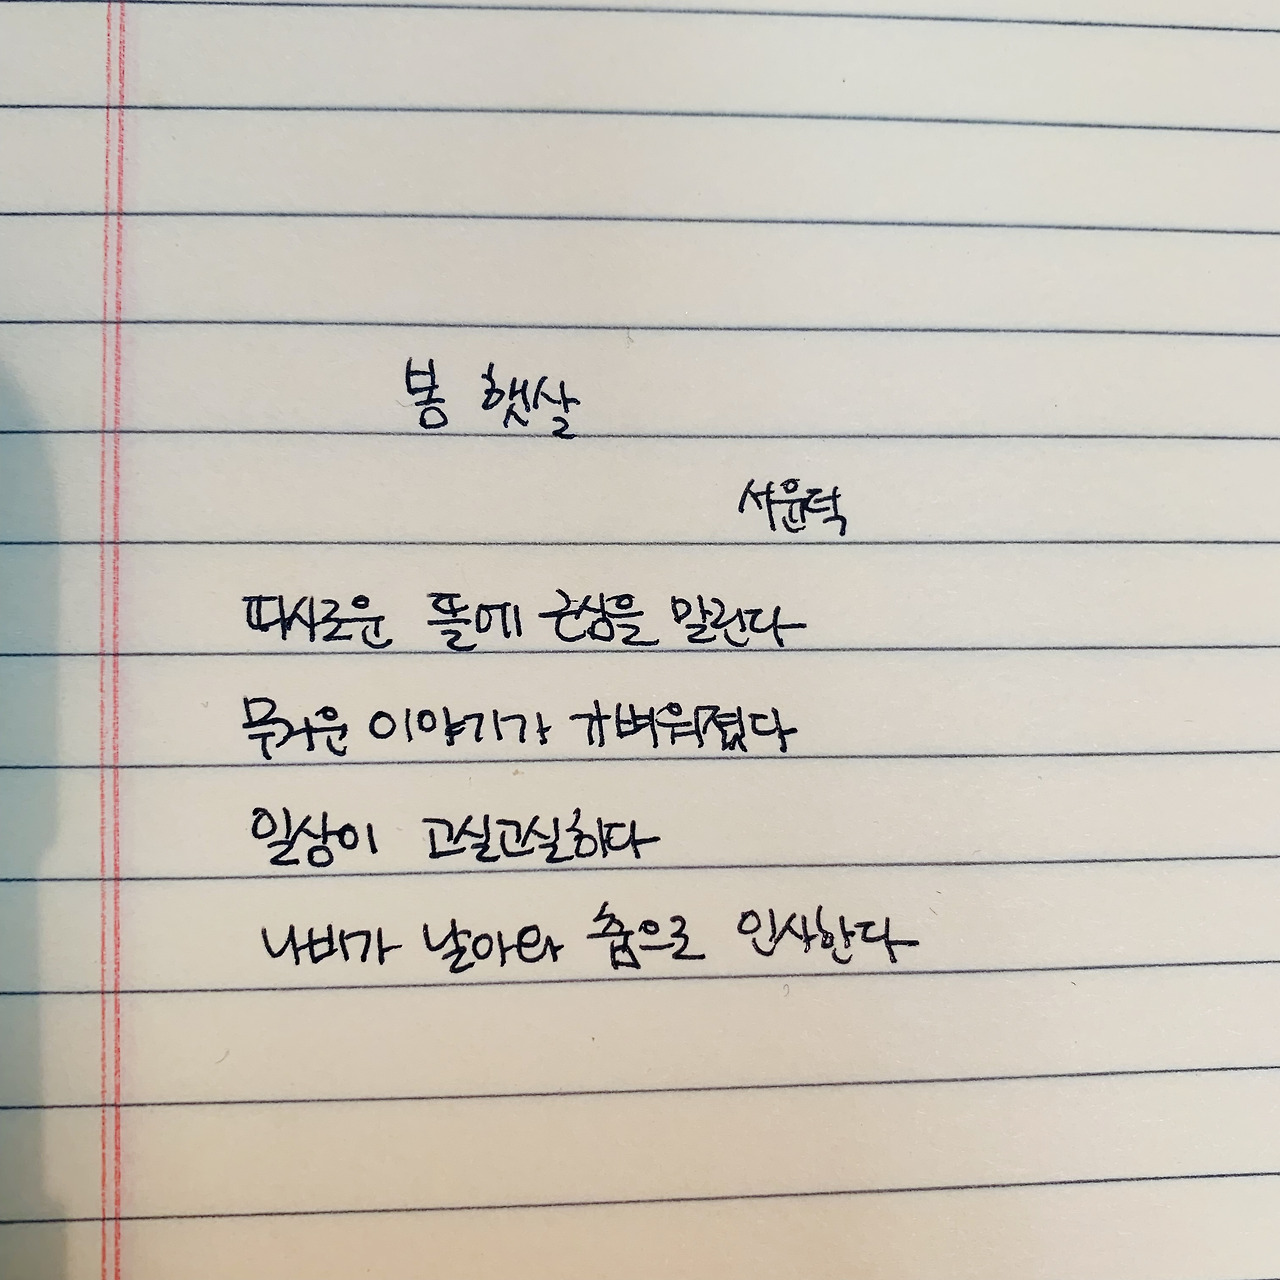 봄 햇살
서윤덕
따사로운 뜰에 근심을 말린다
무거운 이야기가 가벼워졌다
일상이 고실고실하다
나비가 날아와 춤으로 인사한다